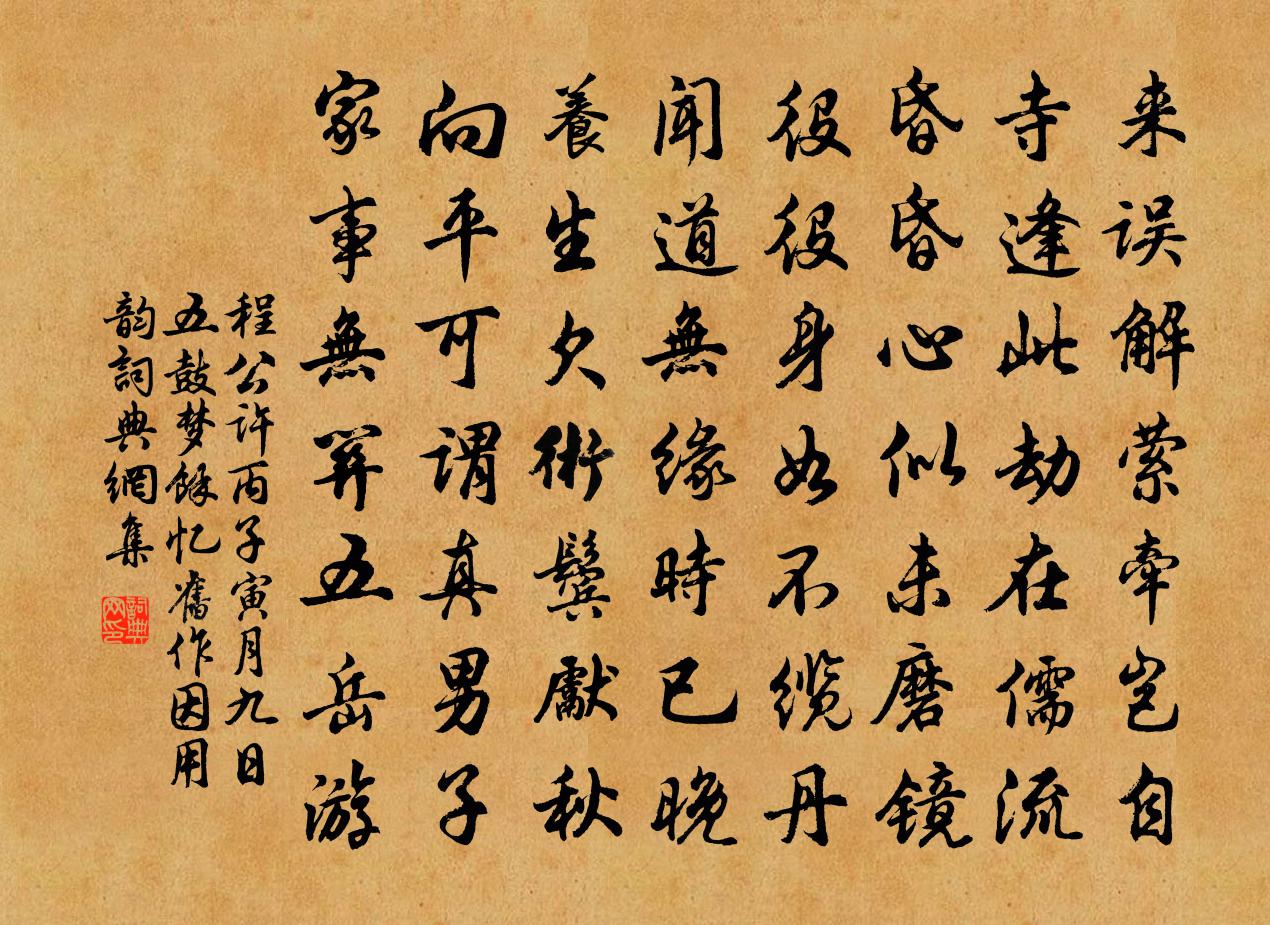 来误解萦牵岂自
寺逢此劫在儒流
昏昏心似未磨镜
役役身如不缆丹
闻道無缘時已晚
養生欠術鬓獻秋
向平可谓真男子
家事無羿五岳游
程公许丙子寅月九日
五鼓梦餘忆舊作因用
韵詞典網集
詞典网印